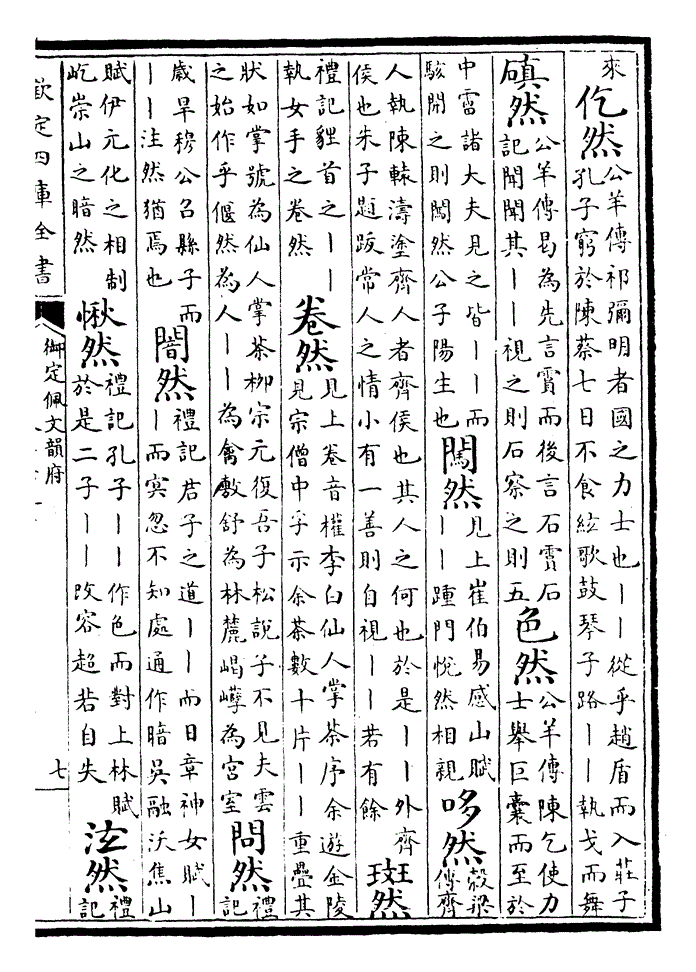 來
仡然
公羊傳祁彌明者國之力士也——從乎趙盾而入莊子
孔子窮於陳蔡七日不食絃歌鼓琴子路——執戈而舞
磌然
公羊傳曷為先言霣而後言石霣石
記聞聞其——視之則石察之則五
色然
公羊傳陳乞使力
士舉巨囊而至於
中霤諸大夫見之皆——而
駭開之則闖然公子陽生也
闖然
見上崔伯易感山賦
——踵門悅然相親
哆然
穀梁
傳齊
人執陳轅濤塗齊人者齊侯也其人之何也於是——外齊
侯也朱子題跋常人之情小有一善則自視——若有餘
斑然
禮記貍首之——
執女手之卷然
卷然
見上卷音權李白仙人掌茶序余遊金陵
見宗僧中孚示余茶數十片——重疊其
狀如掌號為仙人掌茶柳宗元復吾子松說子不見夫雲
之始作乎偃然為人——為禽敷舒為林麓嵑嶭為宮室
問然
禮
記
歲旱穆公召縣子而
——注然猶焉也
闇然
禮記君子之道——而日章神女賦—
—而冥忽不知處通作暗吳融沃焦山
賦伊元化之相制
屹崇山之暗然
愀然
禮記孔子——作色而對上林賦
於是二子——改容超若自失
泫然
禮
記
欽定四庫全書
御定佩文韻府
七